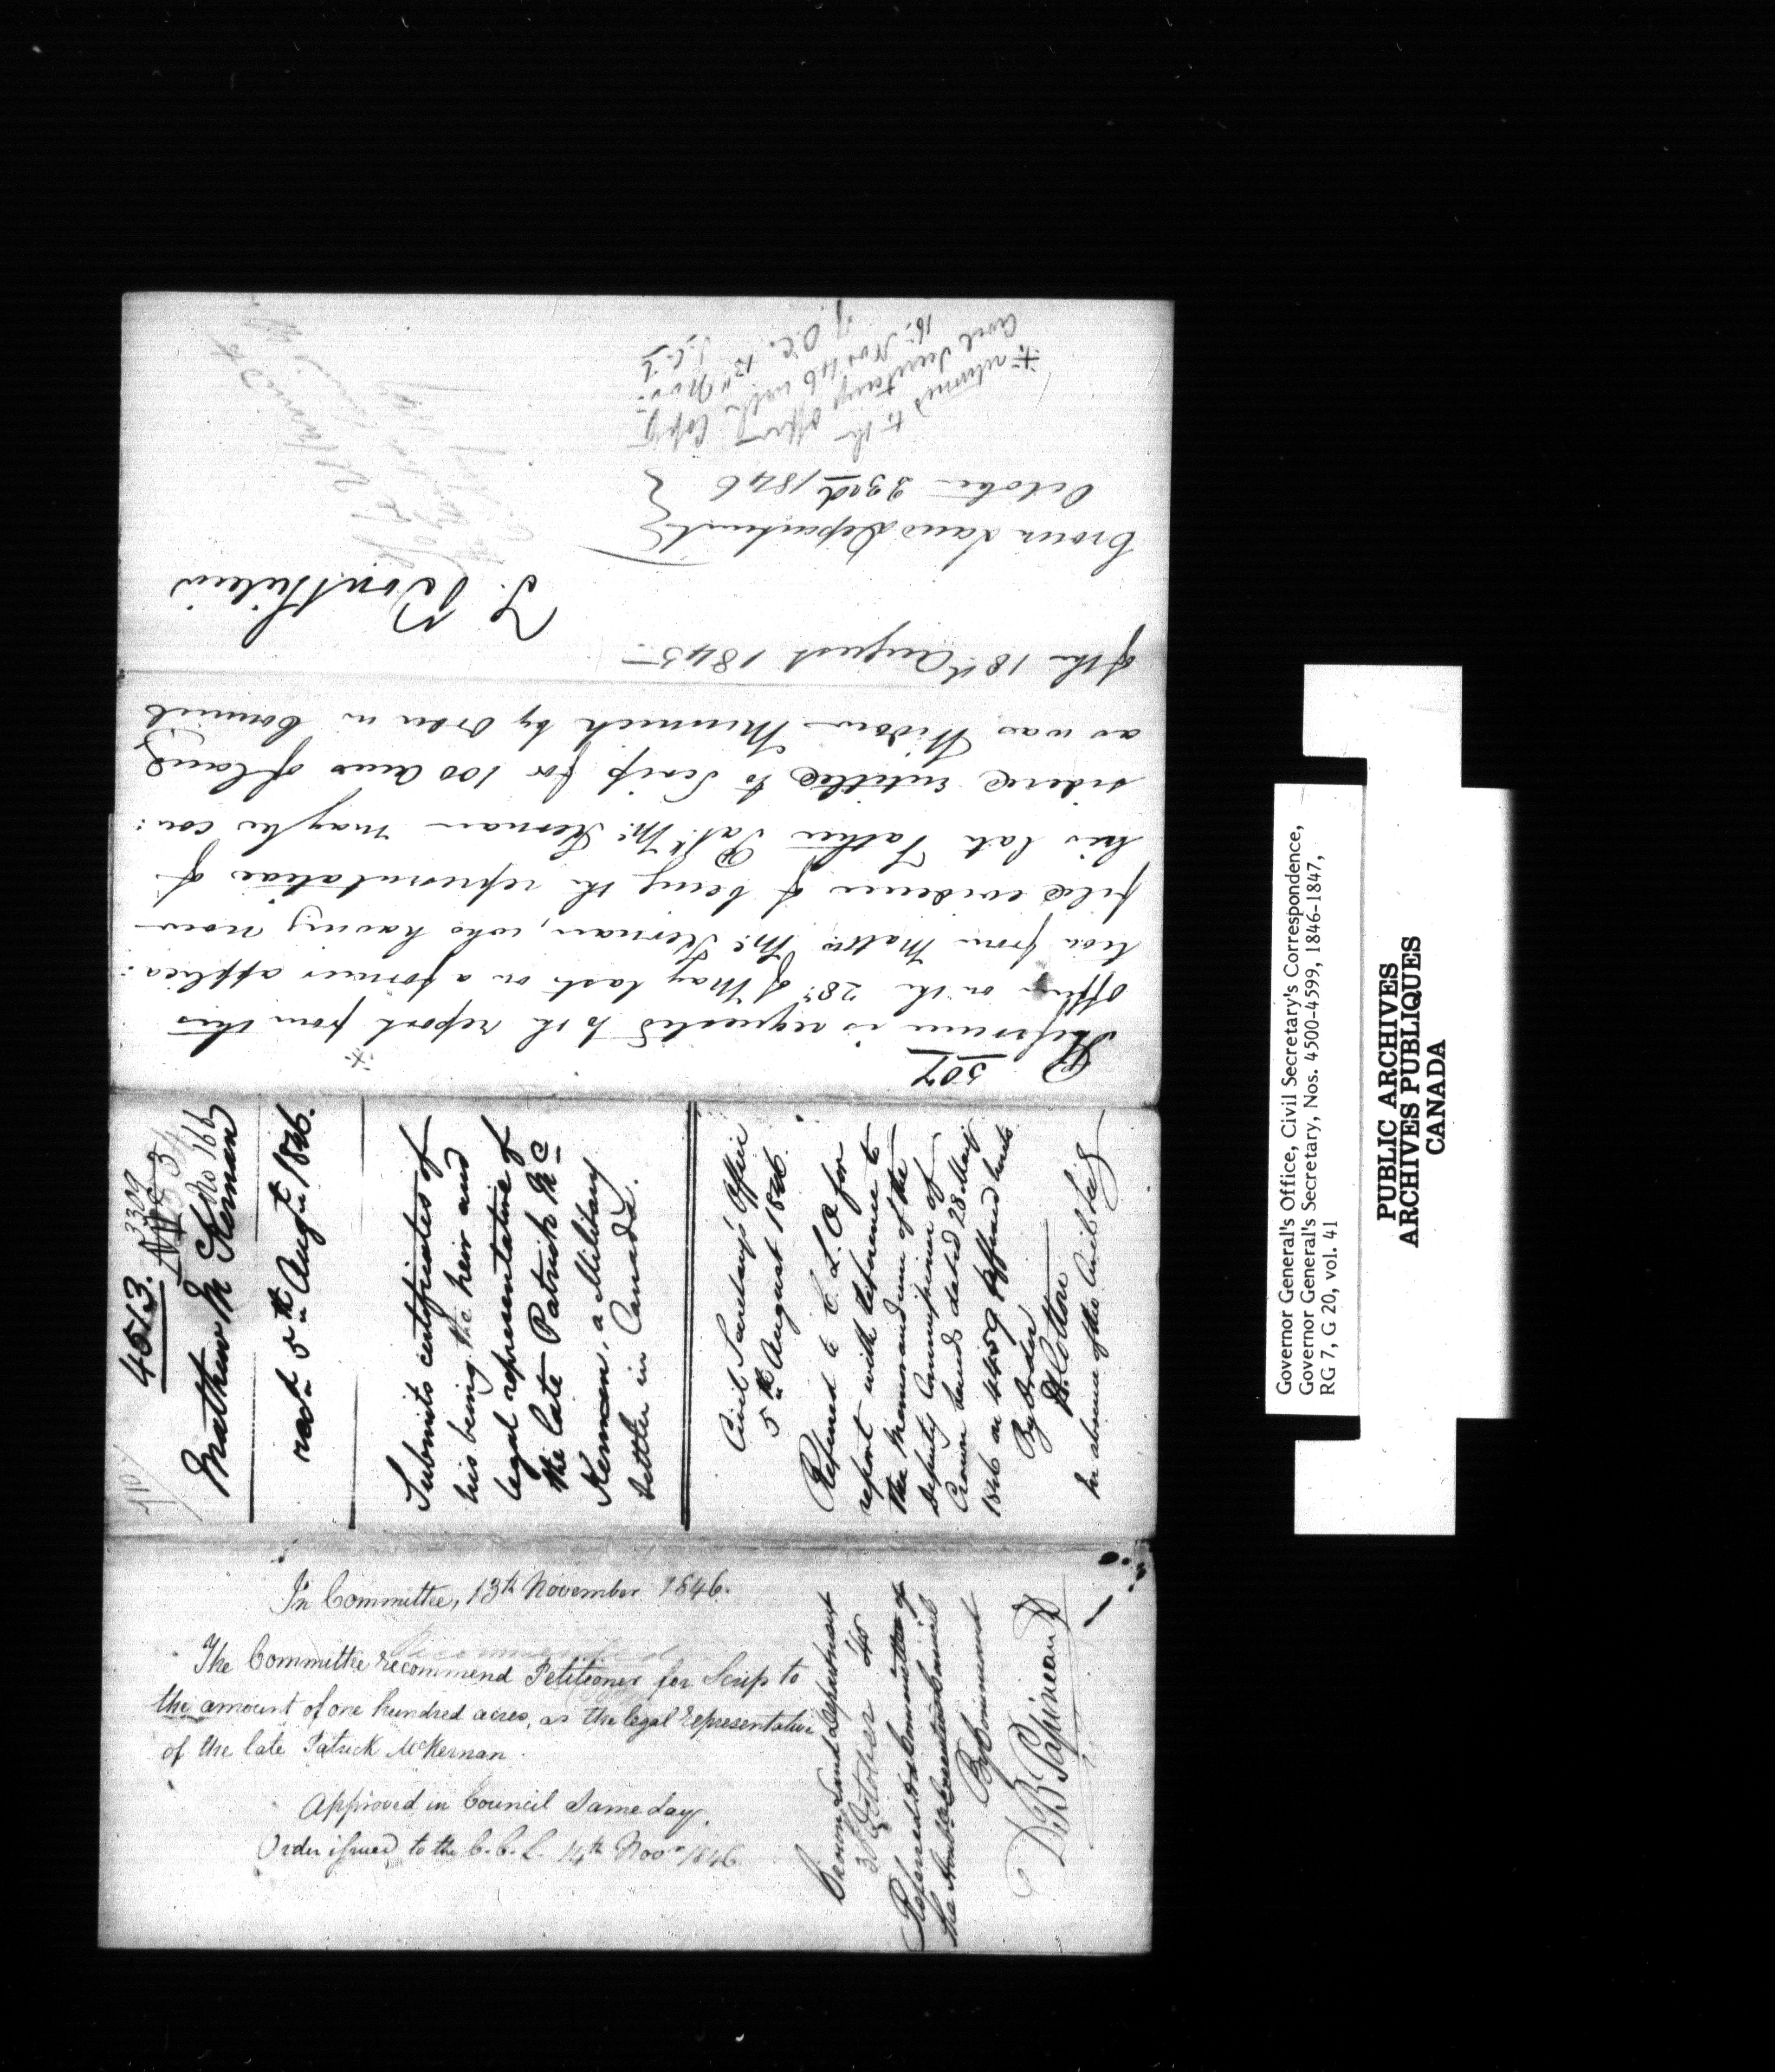 4513.
3329
No 166
Mathew Mc Kernan
recd 5th Augt 1846.
Submits certificates of
his being the heir and
legal representative of
the late Patrick Mc
Kernan, a Military
Settler in Canada.
Civil Secretary's Office
5th August 1846.
Referred to C. L. O for
report with reference to
the Memorandum of the
Deputy Commissioner of
Crown Lands dated 28 May
1846 on 4459 affixed hereto
By Order
In absence of the Civil Secy
507
Reference is requested to the report from this
office on the 28th of May last on a former applica:
tion from Mattw Mc Kernan, who having now
filed evidence of being the representative of
his late Father Patk Mc Kernan may be con:
sidered entitled to Scrip for 100 acres of land
as was Widow Minnick by Order in Council
of the 18th August 1845
T. Bouthillier
Crown Land Department
October 23rd 1846
returned to the
Civil Secretarys office
16th Nov 46 with Copy
of O.C. 13th Nov
Crown Land Department
October 46
Referred to the Committee of
the Honble Executive Council
By Command
D B Papineau
In Committee, 13th November 1846.
The Committee recommend Petitioner for Scrip to
the amount of one hundred acres, as the legal representative
of the late Patrick McKernan.
Approved in Council Same day.
Order issued to the C.C.L. 14th Novr 1846
Governor General's Office, Civil Secretary's Correspondence,
Governor General's Secretary, Nos. 4500-4599, 1846-1847,
RG 7, G 20, vol. 41
PUBLIC ARCHIVES
ARCHIVES PUBLIQUES
CANADA